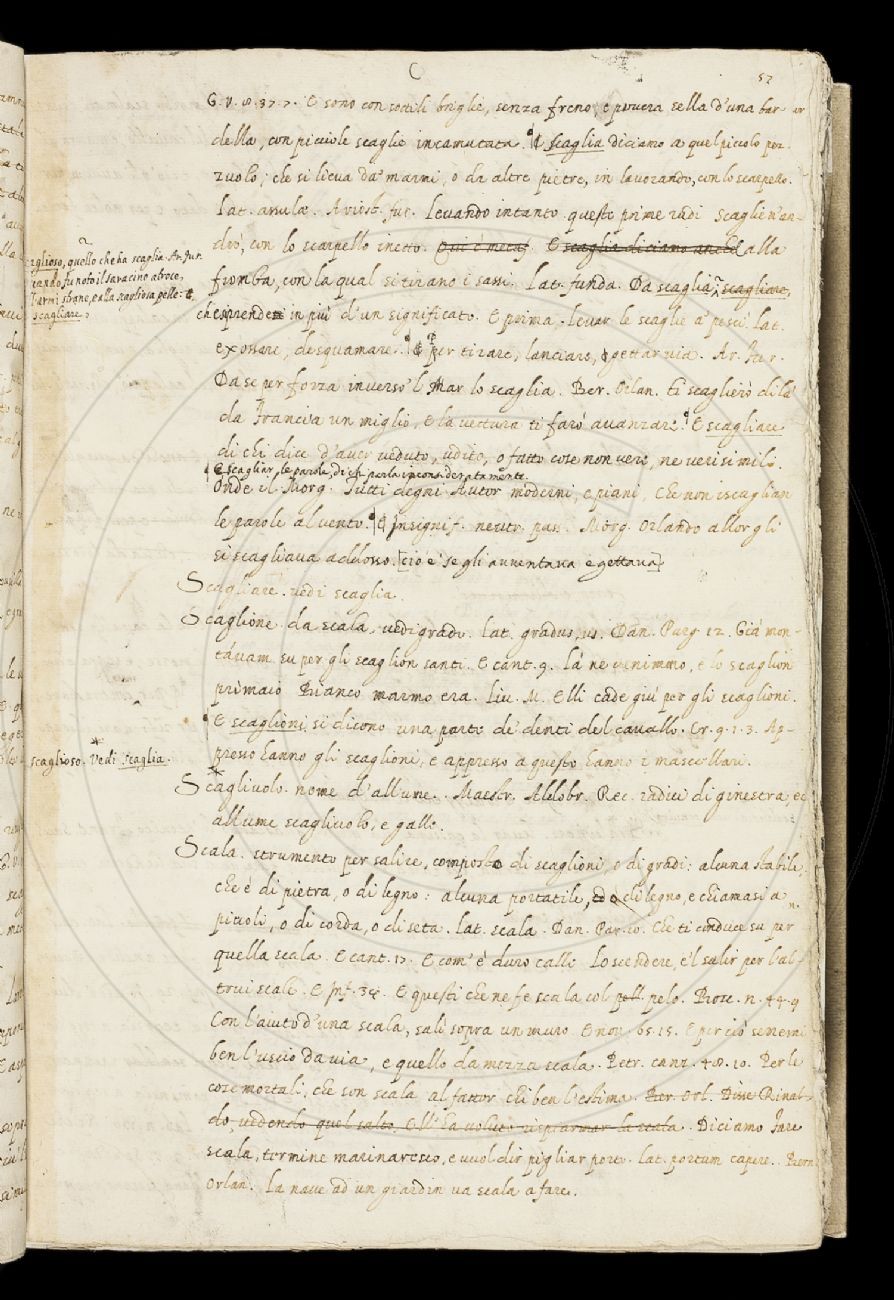 C
53
G. V. 8. 37. 7. E sono con sottili briglie, senza freno, e povera sella d'una bar
della, con picciole scaglie incamutata. E scaglia diciamo a quel piccolo pez
zuolo, che si lieva da' marmi, o da altre pietre, in lavorando, con lo scarpello.
Lat. assulæ. Ariost. fur. Levando intanto queste prime rudi Scaglie n'an
drò, con lo scarpello inetto. Qui è metaf. E scaglia diciamo anche alla
fromba, con la qual si tirano i sassi. Lat. funda. Da scaglia, scagliare,
che si prende in più d'un significato. E prima, levar le scaglie a' pesci. Lat.
exossare, desquamare. E per tirare, lanciare, gettar via. Ar. Fur.
Da se per forza inverso 'l Mar lo scaglia. Ber. Orlan. Ti scaglierò di là
da Francia un miglio, E la vettura ti farò avanzare. E scagliare
di chi dice d'aver veduto, udito, o fatto cose non vere, ne verisimili.
E scagliar le parole, di ch. parla inconsideratamente.
Onde il Morg. Tutti degni Autor moderni, e piani, Che non iscaglian
le parole al vento. E in signif. neutr. pass. Morg. Orlando allor gli
si scagliava addosso. [cio è se gli avventava e gettava]
Scagliare. vedi scaglia.
Scaglione da scala, vedi grado. Lat. gradus, us. Dan. Purg. 12. Già mon-
távam su per gli scaglion santi. E cant. 9. Là ne venimmo, e lo scaglion
primaio Bianco marmo era. Liv. M. Elli cade giù per gli scaglioni.
E scaglioni si dicono una parte de' denti del cavallo. Cr. 9. 1. 3. Ap-
presso hanno gli scaglioni, e appresso a questo hanno i mascellari.
Scagliuolo. nome d'allume. Maestr. Aldobr. Rec. radici di ginestra, ec
allume scagliuolo, e galle.
Scala. strumento per salire, composto di scaglioni, o di gradi: alcuna stabile,
che è di pietra, o di legno: alcuna portatile, ed è di legno, e chiamasi a
piuoli, o di corda, o di seta. Lat. scala. Dan. Par. 10. Che ti conduce su per
quella scala. E cant. 17. E com' è duro calle Lo scendere, e 'l salir per l'al-
trui scale. E Inf. 34. E questi che ne fe scala col pell pelo. Bocc. n. 44. 9
Con l'aiuto d'una scala, salì sopra un muro. E nov. 65. 15. E per ciò serremi
ben l'uscio da via, e quello da mezza scala. Petr. canz. 48. 10. Per le
cose mortali, che son scala al fattor chi ben l'estima. Ber. Orl. Disse Rinal-
do, vedendo quel salto, Ell' ha voluto risparmar la scala. Diciamo fare
scala, termine marinaresco, e vuol dir pigliar porto. Lat. portum capere. Bern.
Orlan. La nave ad un giardin va scala a fare.
scaglioso, quello che ha scaglia. Ar. Fur.
quando fu noto il saracino atroce,
l'armi strane, e alla scagliosa pelle: E
scagliare,
scaglioso. Vedi scaglia.